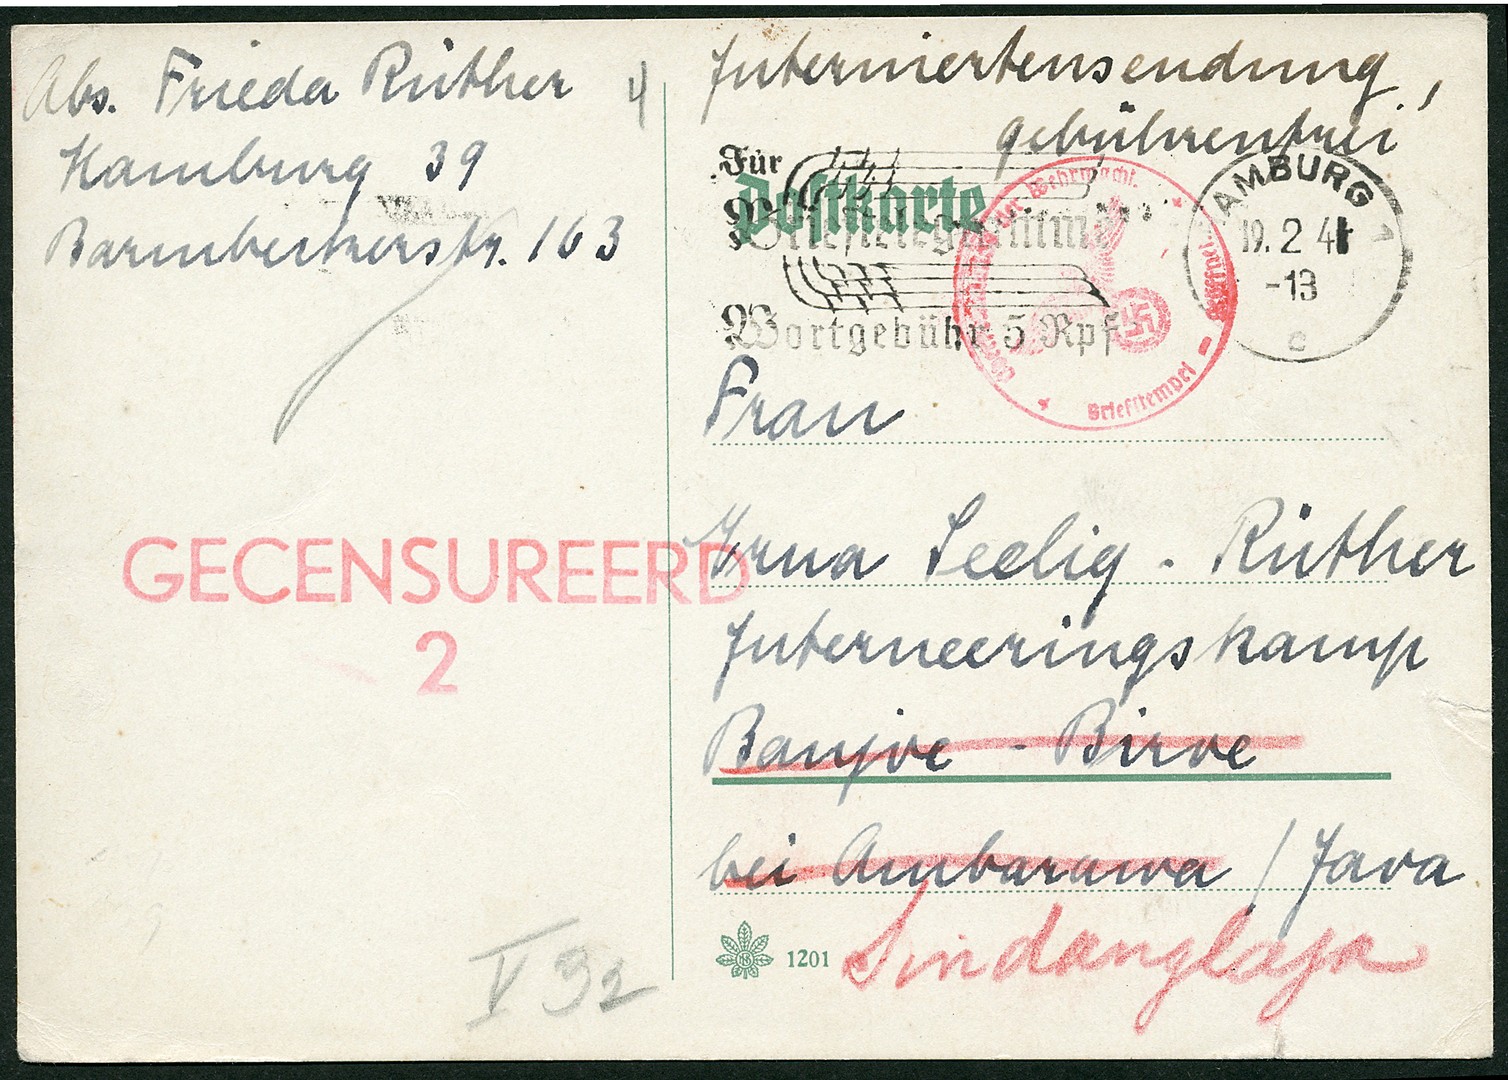 Abs. Frieda Rüther
Hamburg 39
Barmbeckerstr. 163
Interniertensendung,
gebührenfrei
Für
Postkarte
Brieftelegramme
Wortgebühr 5 Rpf
HAMBURG 1
19.2.41
-13
e
der Wehrmacht.
Briefstempel
Frau
Erna Seelig - Rüther
Interneeringskamp
Banjoe - Biroe
bei Ambarawa / Java
Sindanglaja
GECENSUREERD
2
1201
V 32